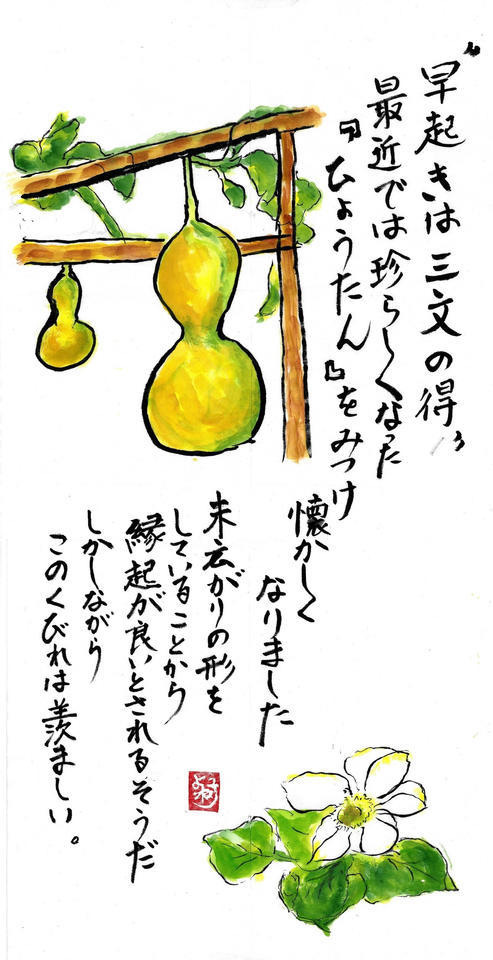 "早起きは三文の得"
最近では珍らしくなった
『ひょうたん』をみつけ
懐かしく
なりました
末広がりの形を
していることから
縁起が良いとされるそうだ
しかしながら
このくびれは羨ましい。